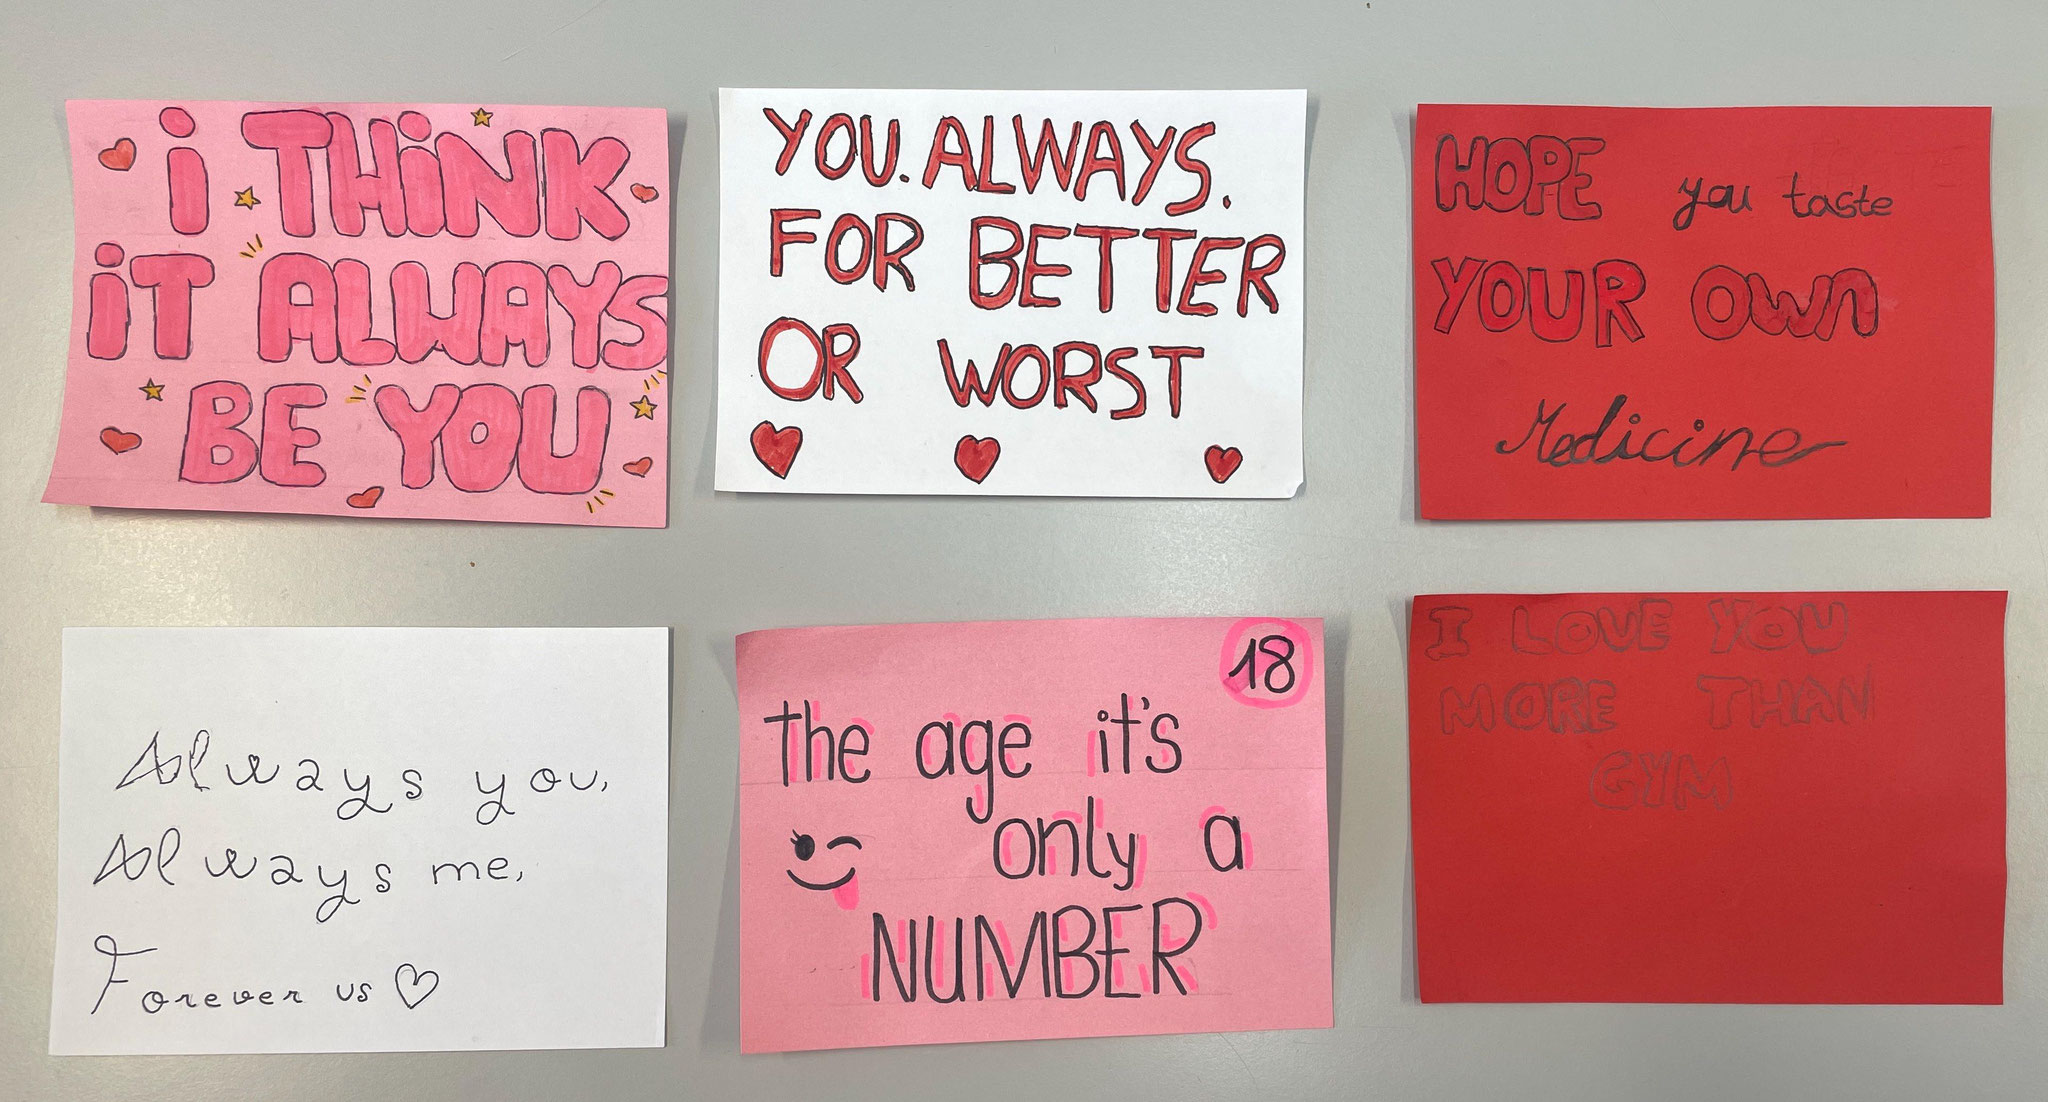 i THiNK
iT ALWAYS
BE YOU
YOU. ALWAYS.
FOR BETTER
OR WORST
HOPE you taste
YOUR OWN
Medicine
Always you,
Always me,
Forever us
18
the age it's
only a
NUMBER
I LOVE YOU
MORE THAN
GYM